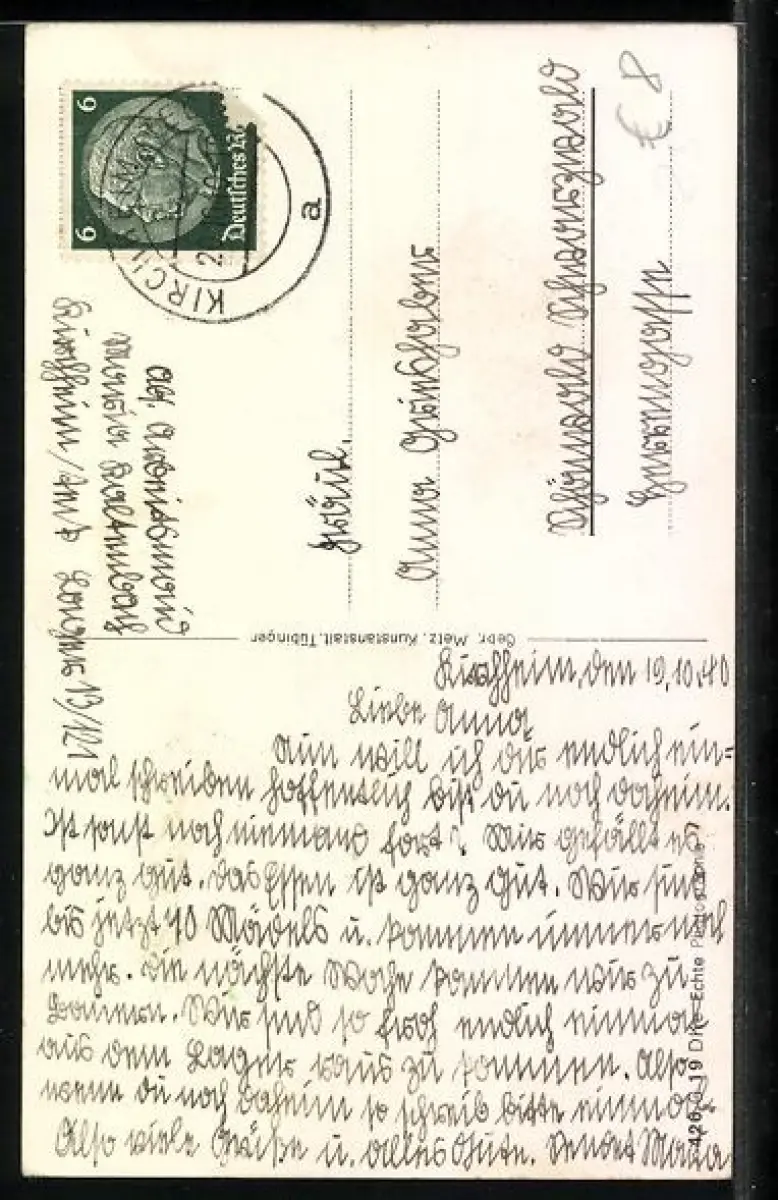 Kirchheim, den 19.10.40
Liebe Anna,
Nun will ich dir endlich ein=
mal schreiben hoffentlich bist du noch daheim.
Ist sonst noch niemand fort? Mir gefällt es
ganz gut. Das Essen ist ganz gut. Wir sind
bis jetzt 40 Mädels u. kommen immer noch
mehr. Die nächste Woche kommen wir zu
Bauern. Wir sind so froh endlich einmal
aus dem Lager raus zu kommen. Also
wenn du noch daheim so schreib bitte einmal.
Also viele Grüße u. alles Gute. Sendet Maria
Gebr. Metz, Kunstanstalt, Tübingen
426 0 19 Dit. Echte Photographie
Abs.
Maria
Kirchheim/
Lager 13/121
6
6
Deutsches R
KIRCHHEIM
a
Fräul.
Anna
Schönwald Schwarzwald
€ 8